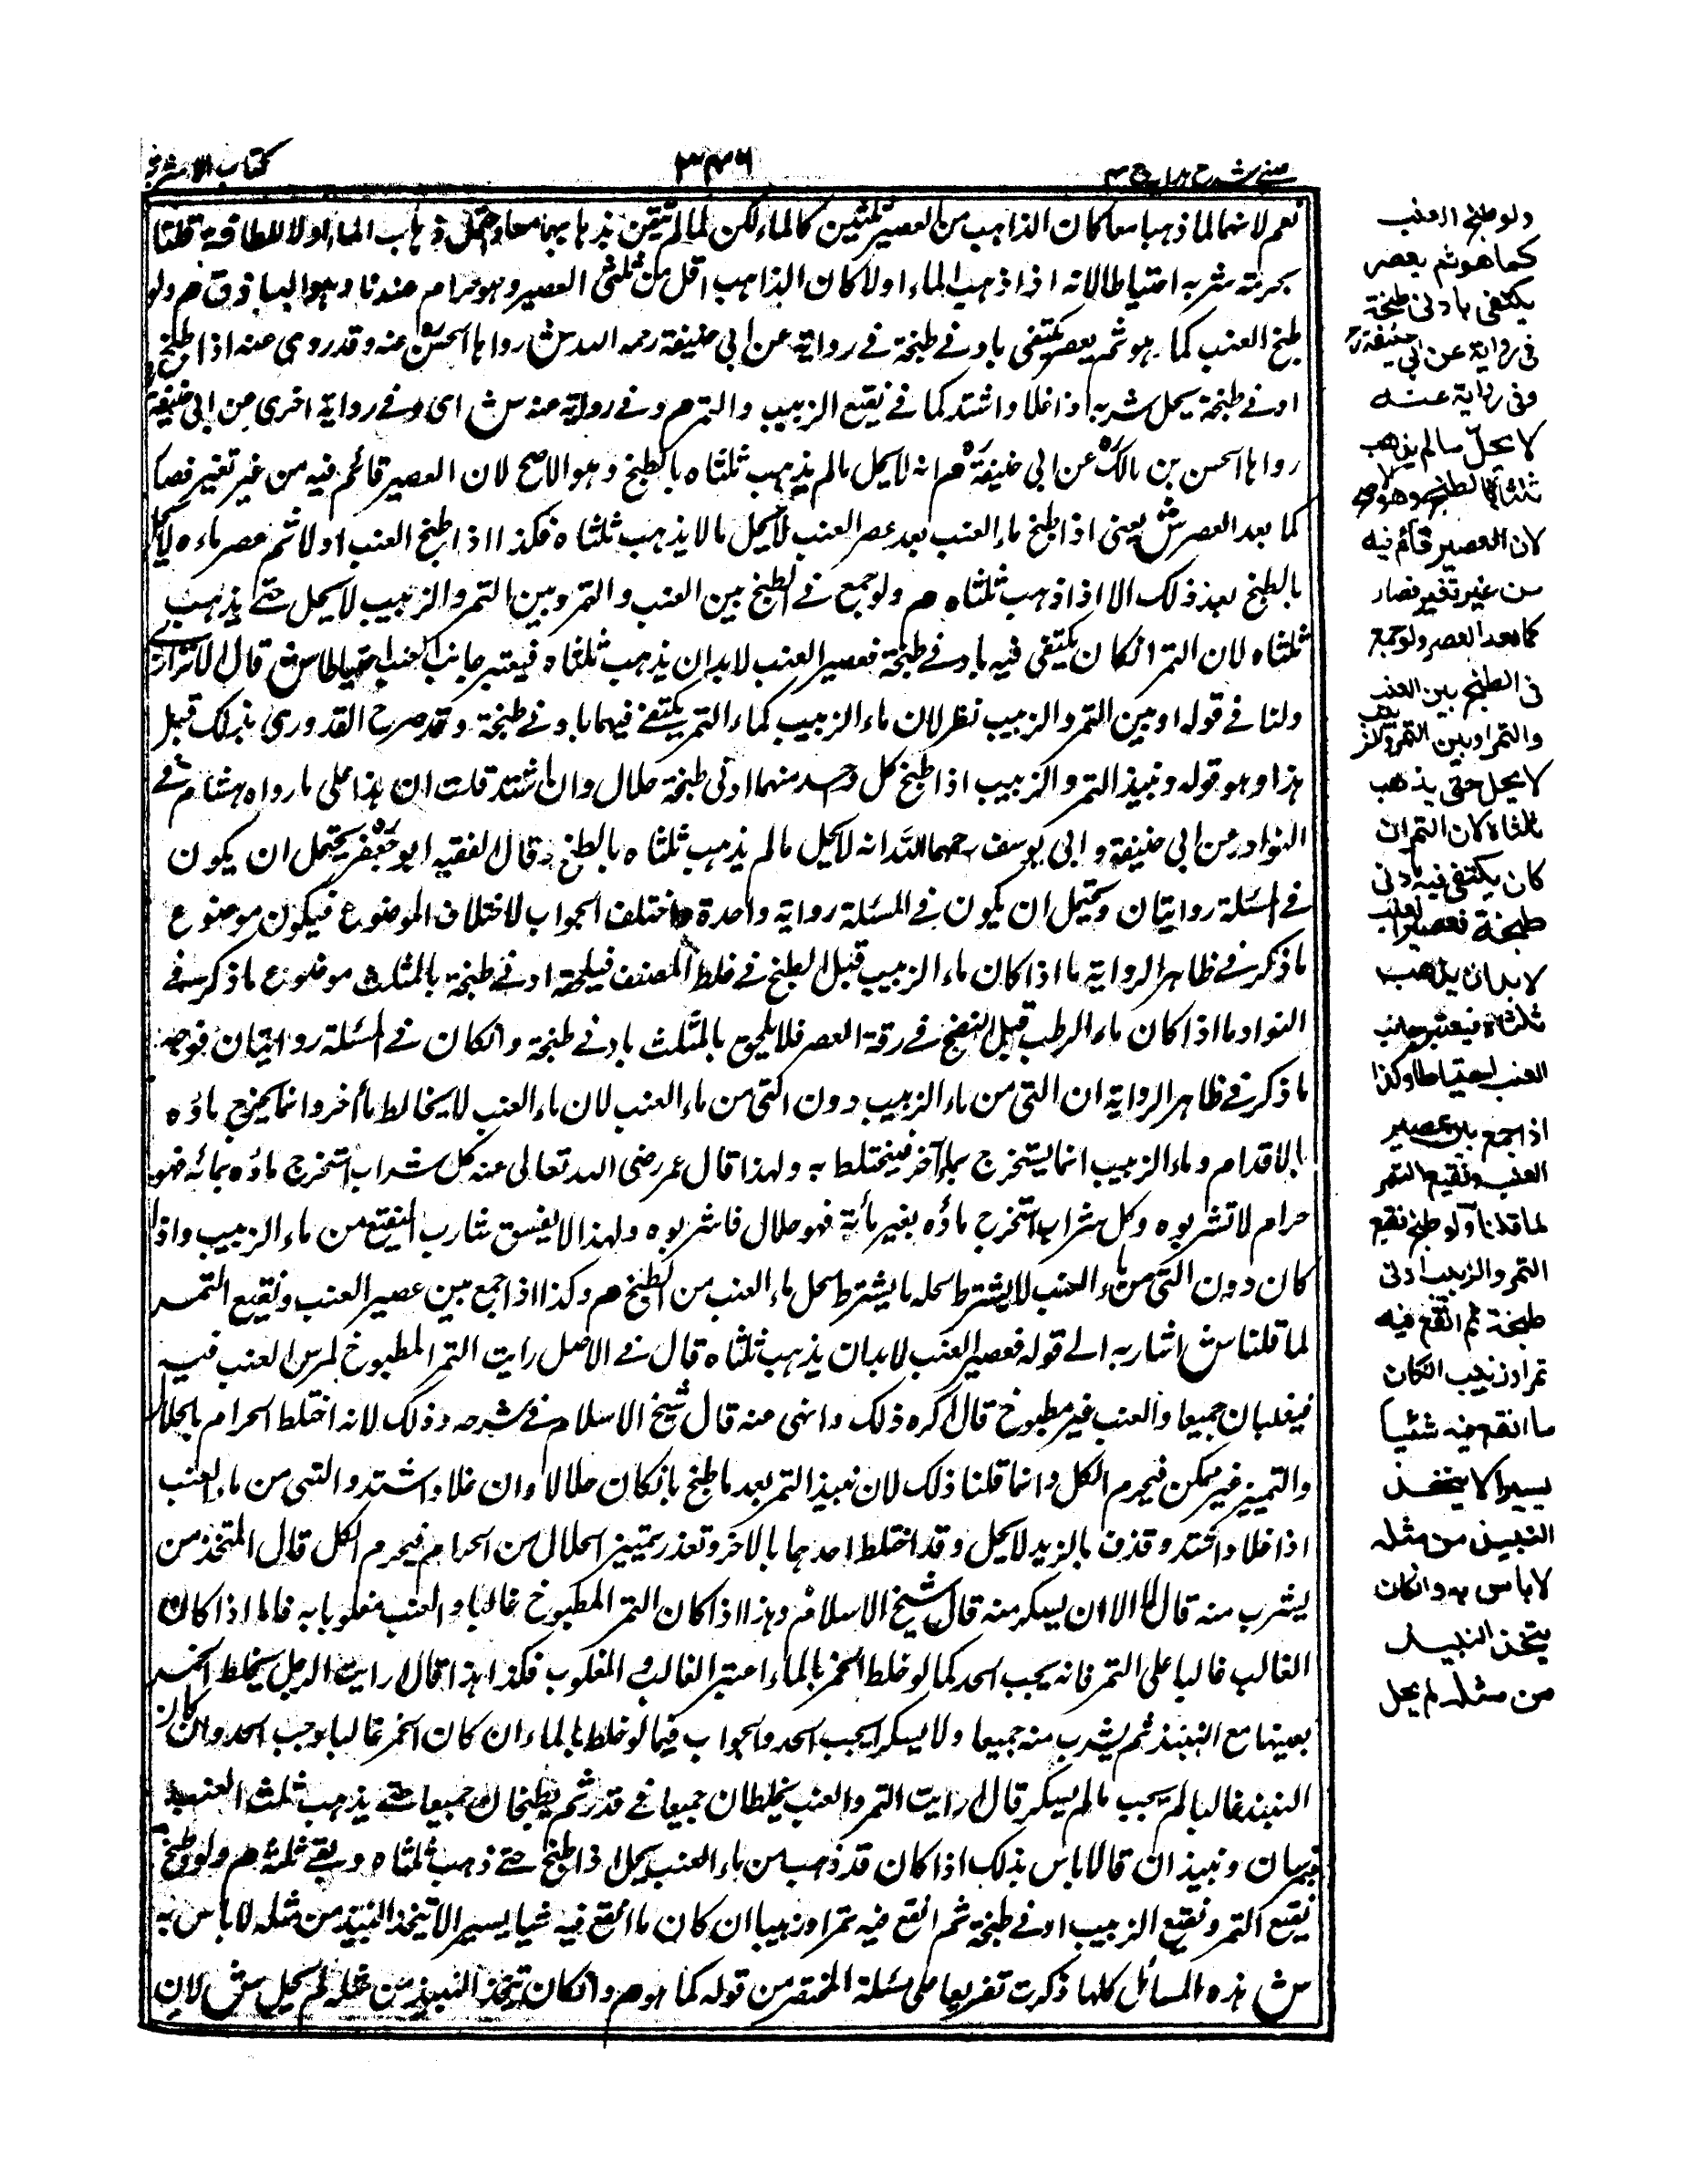 عيني شرح هدايه ج ٤
٣٤٦
كتاب الاشربة
نعم لانهما لما ذهبا معا كان الذاهب من العصير ثلثين كالماء لكن لما لم نتيقن بذهابهما معا واحتمل ذهاب الماء اولا للطافة قلنا
بحرمة شربه احتياطا لانه اذا ذهب الماء اولا كان الذاهب اقل من ثلثى العصير وهو حرام عندنا وهو الباذق م ولو
طبخ العنب كما هو ثم يعصر يكتفى بادنے طبخة فے رواية عن ابي حنيفة رحمه الله ش رواها الحسن عنه وقد روى عنه اذا طبخ
ادنے طبخة يحل شربه اذا غلا واشتد كما فے نقيع الزبيب والتمر م وفے رواية عنه ش اى وفے رواية اخرى عن ابى حنيفة
رواها الحسن بن مالك عن ابى حنيفة م انه لا يحل ما لم يذهب ثلثاه بالطبخ وهو الاصح لان العصير قائم فيه من غير تغير فصا
كما بعد العصر ش يعنى اذا طبخ ماء العنب بعد عصر العنب لا يحل ما لا يذهب ثلثاه فكذا اذا طبخ العنب اولا ثم عصر ماءه لا يحل
بالطبخ بعد ذلك الا اذا ذهب ثلثاه م ولو جمع فے الطبخ بين العنب والتمر وبين التمر والزبيب لا يحل حتے يذهب
ثلثاه لان التمر انكان يكتفى فيه بادنے طبخة فعصير العنب لابد ان يذهب ثلثاه فيعتبر جانب العنب احتياطا ش قال الاترازى
ولنا فے قوله او بين التمر والزبيب نظر لان ماء الزبيب كماء التمر يكتفے فيهما بادنے طبخة وقد صرح القدورى بذلك قبل
هذا وهو قوله ونبيذ التمر والزبيب اذا طبخ كل واحد منهما ادنى طبخة حلال وان اشتد قلت ان هذا على ما رواه هشام فے
النوادر عن ابى حنيفة وابى يوسف رحمهما الله انه لا يحل ما لم يذهب ثلثاه بالطبخ وقال الفقيه ابو جعفر يحتمل ان يكون
فے المسئلة روايتان ويحتمل ان يكون فے المسئلة رواية واحدة واختلف الجواب لاختلاف الموضوع فيكون موضوع
ما ذكر فے ظاهر الرواية ما اذا كان ماء الزبيب قبل الطبخ فے غلظ المصنف فيلحقه ادنے طبخة بالمثلث موضوع ما ذكر فے
النوادر ما اذا كان ماء الرطب قبل النضج فے رقة العصر فلا يلحق بالمثلث بادنے طبخة وانكان فے المسئلة روايتان فوجه
ما ذكر فے ظاهر الرواية ان التى من ماء الزبيب دون التى من ماء العنب لان ماء العنب لا يخالط ماء آخر وانما يخرج ماؤه
بالاقدام وماء الزبيب انما يستخرج بماء آخر فيختلط به ولهذا قال عمر رضى الله تعالى عنه كل شراب استخرج ماؤه بمائه فهو
حرام لا تشربوه وكل شراب استخرج ماؤه بغير مائه فهو حلال فاشربوه ولهذا لا يفسق شارب النقيع من ماء الزبيب واذا
كان دون التى من ماء العنب لا يشترط لحله ما يشترط لحل ماء العنب من الطبخ م وكذا اذا جمع بين عصير العنب ونقيع التمر
لما قلنا ش اشار به الے قوله فعصير العنب لابد ان يذهب ثلثاه قال فے الاصل رايت التمر المطبوخ لمرس العنب فيه
فيغليان جميعا والعنب غير مطبوخ قال اكره ذلك وانهى عنه قال شيخ الاسلام فے شرحه وذلك لانه اختلط الحرام بالحلال
والتمييز غير ممكن فيحرم الكل وانما قلنا ذلك لان نبيذ التمر بعد ما طبخ بانكان حلالا وان غلا واشتد والتى من ماء العنب
اذا غلا واشتد وقذف بالزبد لا يحل وقد اختلط احدهما بالآخر وتعذر تمييز الحلال من الحرام فيحرم الكل قال المتخذ من
يشرب منه قال لا الا ان يسكر منه قال شيخ الاسلام وهذا اذا كان التمر المطبوخ غالبا والعنب مغلوبا به فاما اذا كان
الغالب غالبا على التمر فانه يجب الحد كما لو خلط الخمر بالماء اعتبر الغالب والمغلوب فكذا هذا قال ارايت الرجل يخلط الخمر
بعينها مع النبيذ ثم يشرب منه جميعا ولا يسكر ايجب الحد والجواب فيما لو خلط بالماء ان كان الخمر غالبا وجب الحد وان كان
النبيذ غالبا لم يجب ما لم يسكر قال ارايت التمر والعنب يخلطان جميعا فے قدر ثم يطبخان جميعا حتے يذهب ثلث العنب
ونبيذان قال لا باس بذلك اذا كان قد ذهب من ماء العنب يحل اذا طبخ حتے ذهب ثلثاه وبقے ثلثه م ولو طبخ
نقيع التمر ونقيع الزبيب ادنے طبخة ثم انقع فيه تمرا وزبيبا ان كان ما انقع فيه شيا يسيرا لا يتخذ النبيذ من مثله لا باس به
ش هذه المسائل كلها ذكرت تفريعا على مسئلة المختصر من قوله كما هو م وانكان يتخذ النبيذ من مثله لم يحل ش لان
ولو طبخ العنب
كما هو ثم يعصر
يكتفى بادنى طبخة
فى رواية عن ابى حنيفة رح
وفى رواية عنه
لا يحل ما لم يذهب
ثلثاه بالطبخ وهو الاصح
لان العصير قائم فيه
من غير تغير فصار
كما بعد العصر ولو جمع
فى الطبخ بين العنب
والتمر او بين التمر والزبيب
لا يحل حتى يذهب
ثلثاه لان التمر ان
كان يكتفى فيه بادنى
طبخة فعصير العنب
لابد ان يذهب
ثلثاه فيعتبر جانب
العنب احتياطا وكذا
اذا جمع بين عصير
العنب ونقيع التمر
لما قلنا ولو طبخ نقيع
التمر والزبيب ادنى
طبخة ثم انقع فيه
تمر او زبيب ان كان
ما انقع فيه شئيا
يسيرا لا يتخذ
النبيذ من مثله
لا باس به وان كان
يتخذ النبيذ
من مثله لم يحل